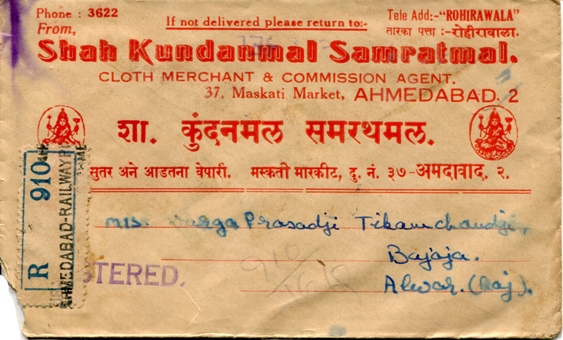 Phone : 3622
If not delivered please return to:-
Tele Add:-"ROHIRAWALA"
तारका पत्ता :- रोहीरावाला.
From,
Shah Kundanmal Samratmal.
CLOTH MERCHANT & COMMISSION AGENT.
37, Maskati Market, AHMEDABAD. 2
शा. कुंदनमल समरथमल.
सुतर अने आडतना वेपारी. मस्कती मारकीट, दु. नं. ३७-अमदावाद, २.
R 910
AHMEDABAD-RAILWAY
M/s. Durga Prasadji Tikamchandji,
Bajaja.
Alwar. (Raj).
STERED.